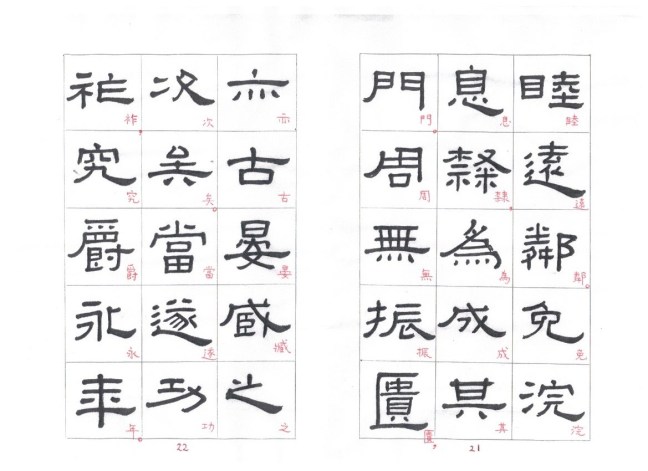 睦遠鄰免浣
睦遠鄰。免浣
息隸為成其
息隸。為成其
門周無振匱
門。周無振匱。
21
亦古晏臧之
亦古晏臧之
次矣當遂功
次矣。當遂功
祚究爵永年
祚。究爵永年。
22